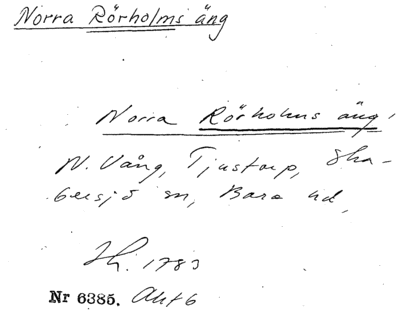 Norra Rörholms äng
Norra Rörholms äng,
N. Vång, Tjustorp, Ska-
bersjö sn, Bara hd,
Sk. 1783
Nr 6385. Akt 6